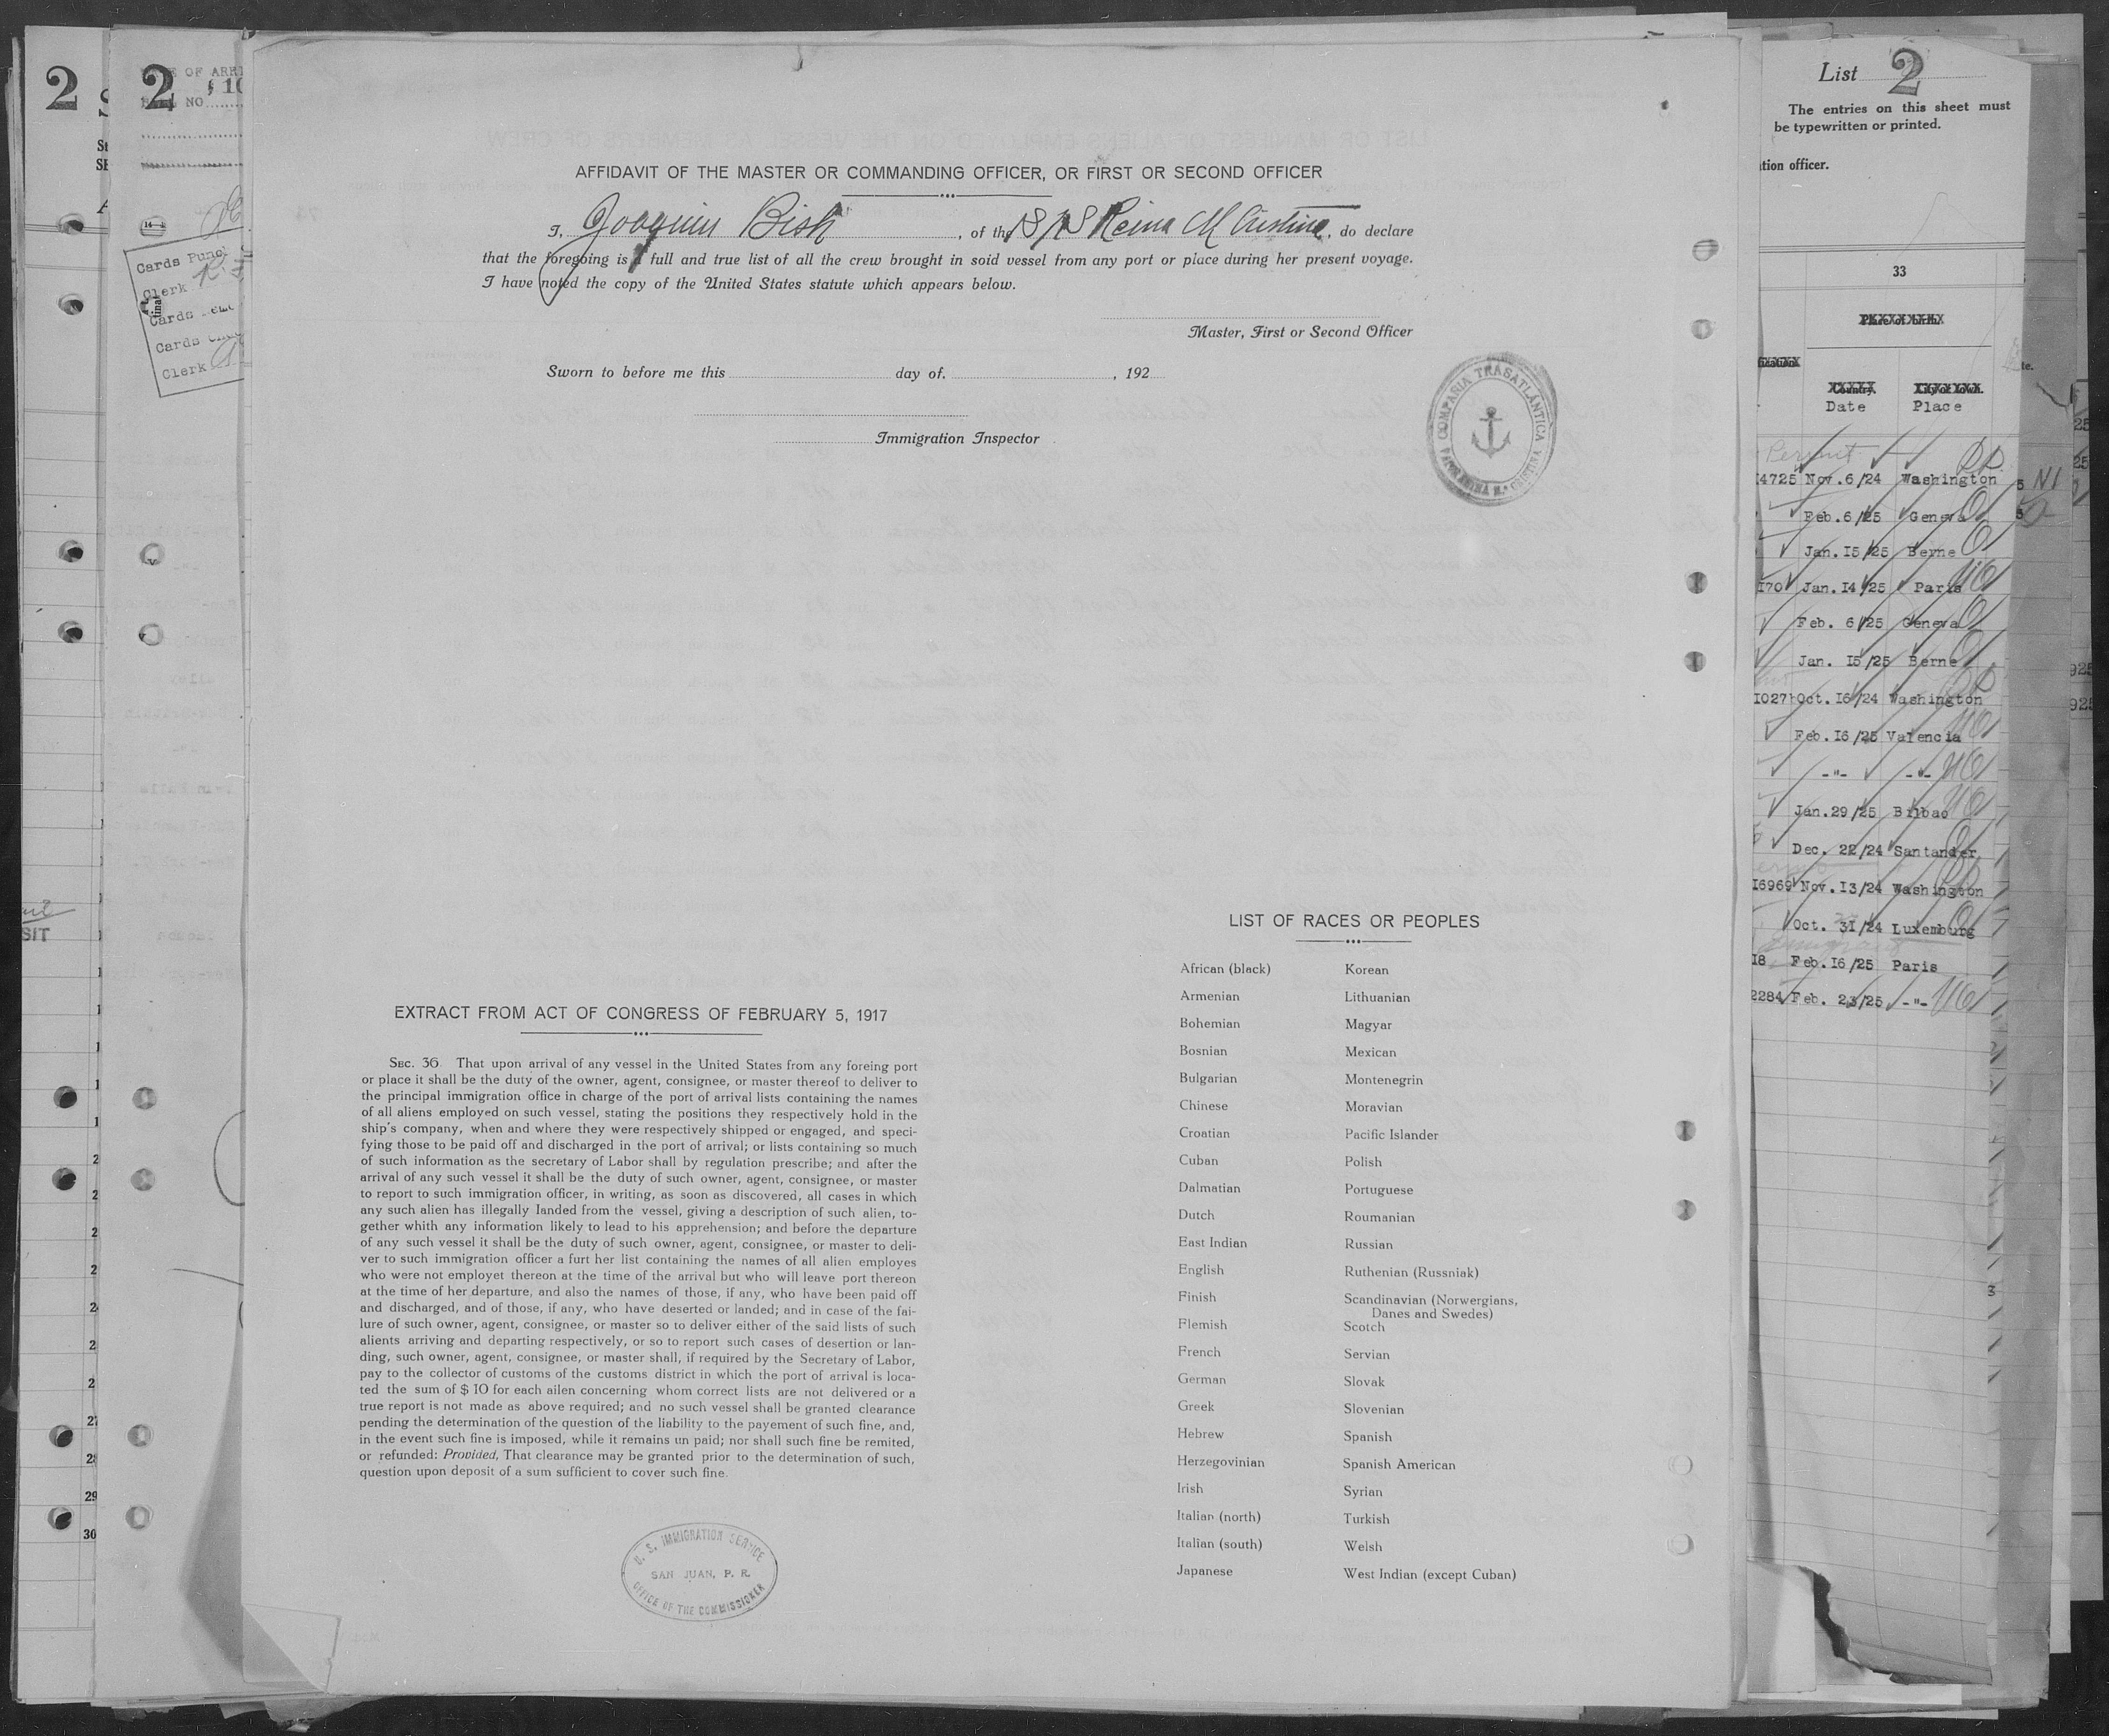 2
2
OF ARRI
NO
Cards Punc
Clerk
Cards
Cards
Clerk
AFFIDAVIT OF THE MASTER OR COMMANDING OFFICER, OR FIRST OR SECOND OFFICER
I, Joaquin Bish, of the S/S Reina M Cristina, do declare
that the foregoing is a full and true list of all the crew brought in soid vessel from any port or place during her present voyage.
I have noted the copy of the United States statute which appears below.
Master, First or Second Officer
Sworn to before me this day of, , 192
Immigration Inspector
COMPAÑIA TRASATLÁNTICA
VAPOR REINA M.ª CRISTINA
EXTRACT FROM ACT OF CONGRESS OF FEBRUARY 5, 1917
SEC. 36. That upon arrival of any vessel in the United States from any foreing port
or place it shall be the duty of the owner, agent, consignee, or master thereof to deliver to
the principal immigration office in charge of the port of arrival lists containing the names
of all aliens employed on such vessel, stating the positions they respectively hold in the
ship's company, when and where they were respectively shipped or engaged, and speci-
fying those to be paid off and discharged in the port of arrival; or lists containing so much
of such information as the secretary of Labor shall by regulation prescribe; and after the
arrival of any such vessel it shall be the duty of such owner, agent, consignee, or master
to report to such immigration officer, in writing, as soon as discovered, all cases in which
any such alien has illegally landed from the vessel, giving a description of such alien, to-
gether whith any information likely to lead to his apprehension; and before the departure
of any such vessel it shall be the duty of such owner, agent, consignee, or master to deli-
ver to such immigration officer a furt her list containing the names of all alien employes
who were not employet thereon at the time of the arrival but who will leave port thereon
at the time of her departure, and also the names of those, if any, who have been paid off
and discharged, and of those, if any, who have deserted or landed; and in case of the fai-
lure of such owner, agent, consignee, or master so to deliver either of the said lists of such
alients arriving and departing respectively, or so to report such cases of desertion or lan-
ding, such owner, agent, consignee, or master shall, if required by the Secretary of Labor,
pay to the collector of customs of the customs district in which the port of arrival is loca-
ted the sum of $ 10 for each ailen concerning whom correct lists are not delivered or a
true report is not made as above required; and no such vessel shall be granted clearance
pending the determination of the question of the liability to the payement of such fine, and,
in the event such fine is imposed, while it remains un paid; nor shall such fine be remited,
or refunded: Provided, That clearance may be granted prior to the determination of such,
question upon deposit of a sum sufficient to cover such fine.
U. S. IMMIGRATION SERVICE
SAN JUAN, P. R.
OFFICE OF THE COMMISSIONER
LIST OF RACES OR PEOPLES
African (black)
Armenian
Bohemian
Bosnian
Bulgarian
Chinese
Croatian
Cuban
Dalmatian
Dutch
East Indian
English
Finish
Flemish
French
German
Greek
Hebrew
Herzegovinian
Irish
Italian (north)
Italian (south)
Japanese
Korean
Lithuanian
Magyar
Mexican
Montenegrin
Moravian
Pacific Islander
Polish
Portuguese
Roumanian
Russian
Ruthenian (Russniak)
Scandinavian (Norwergians,
Danes and Swedes)
Scotch
Servian
Slovak
Slovenian
Spanish
Spanish American
Syrian
Turkish
Welsh
West Indian (except Cuban)
List 2
The entries on this sheet must
be typewritten or printed.
tion officer.
33
Place of birth.
Country. City or town.
Date Place
Permit
4725 Nov.6/24 Washington
Feb.6/25 Geneva
Jan.15/25 Berne
170 Jan.14/25 Paris
Feb. 6/25 Geneva
Jan. 15/25 Berne
10271 Oct.16/24 Washington
Feb.16/25 Valencia
-"- -"-
Jan.29/25 Bilbao
Dec. 22/24 Santander
16969 Nov.13/24 Washington
Oct. 31/24 Luxemburg
18 Feb.16/25 Paris
2284 Feb. 23/25 -"-